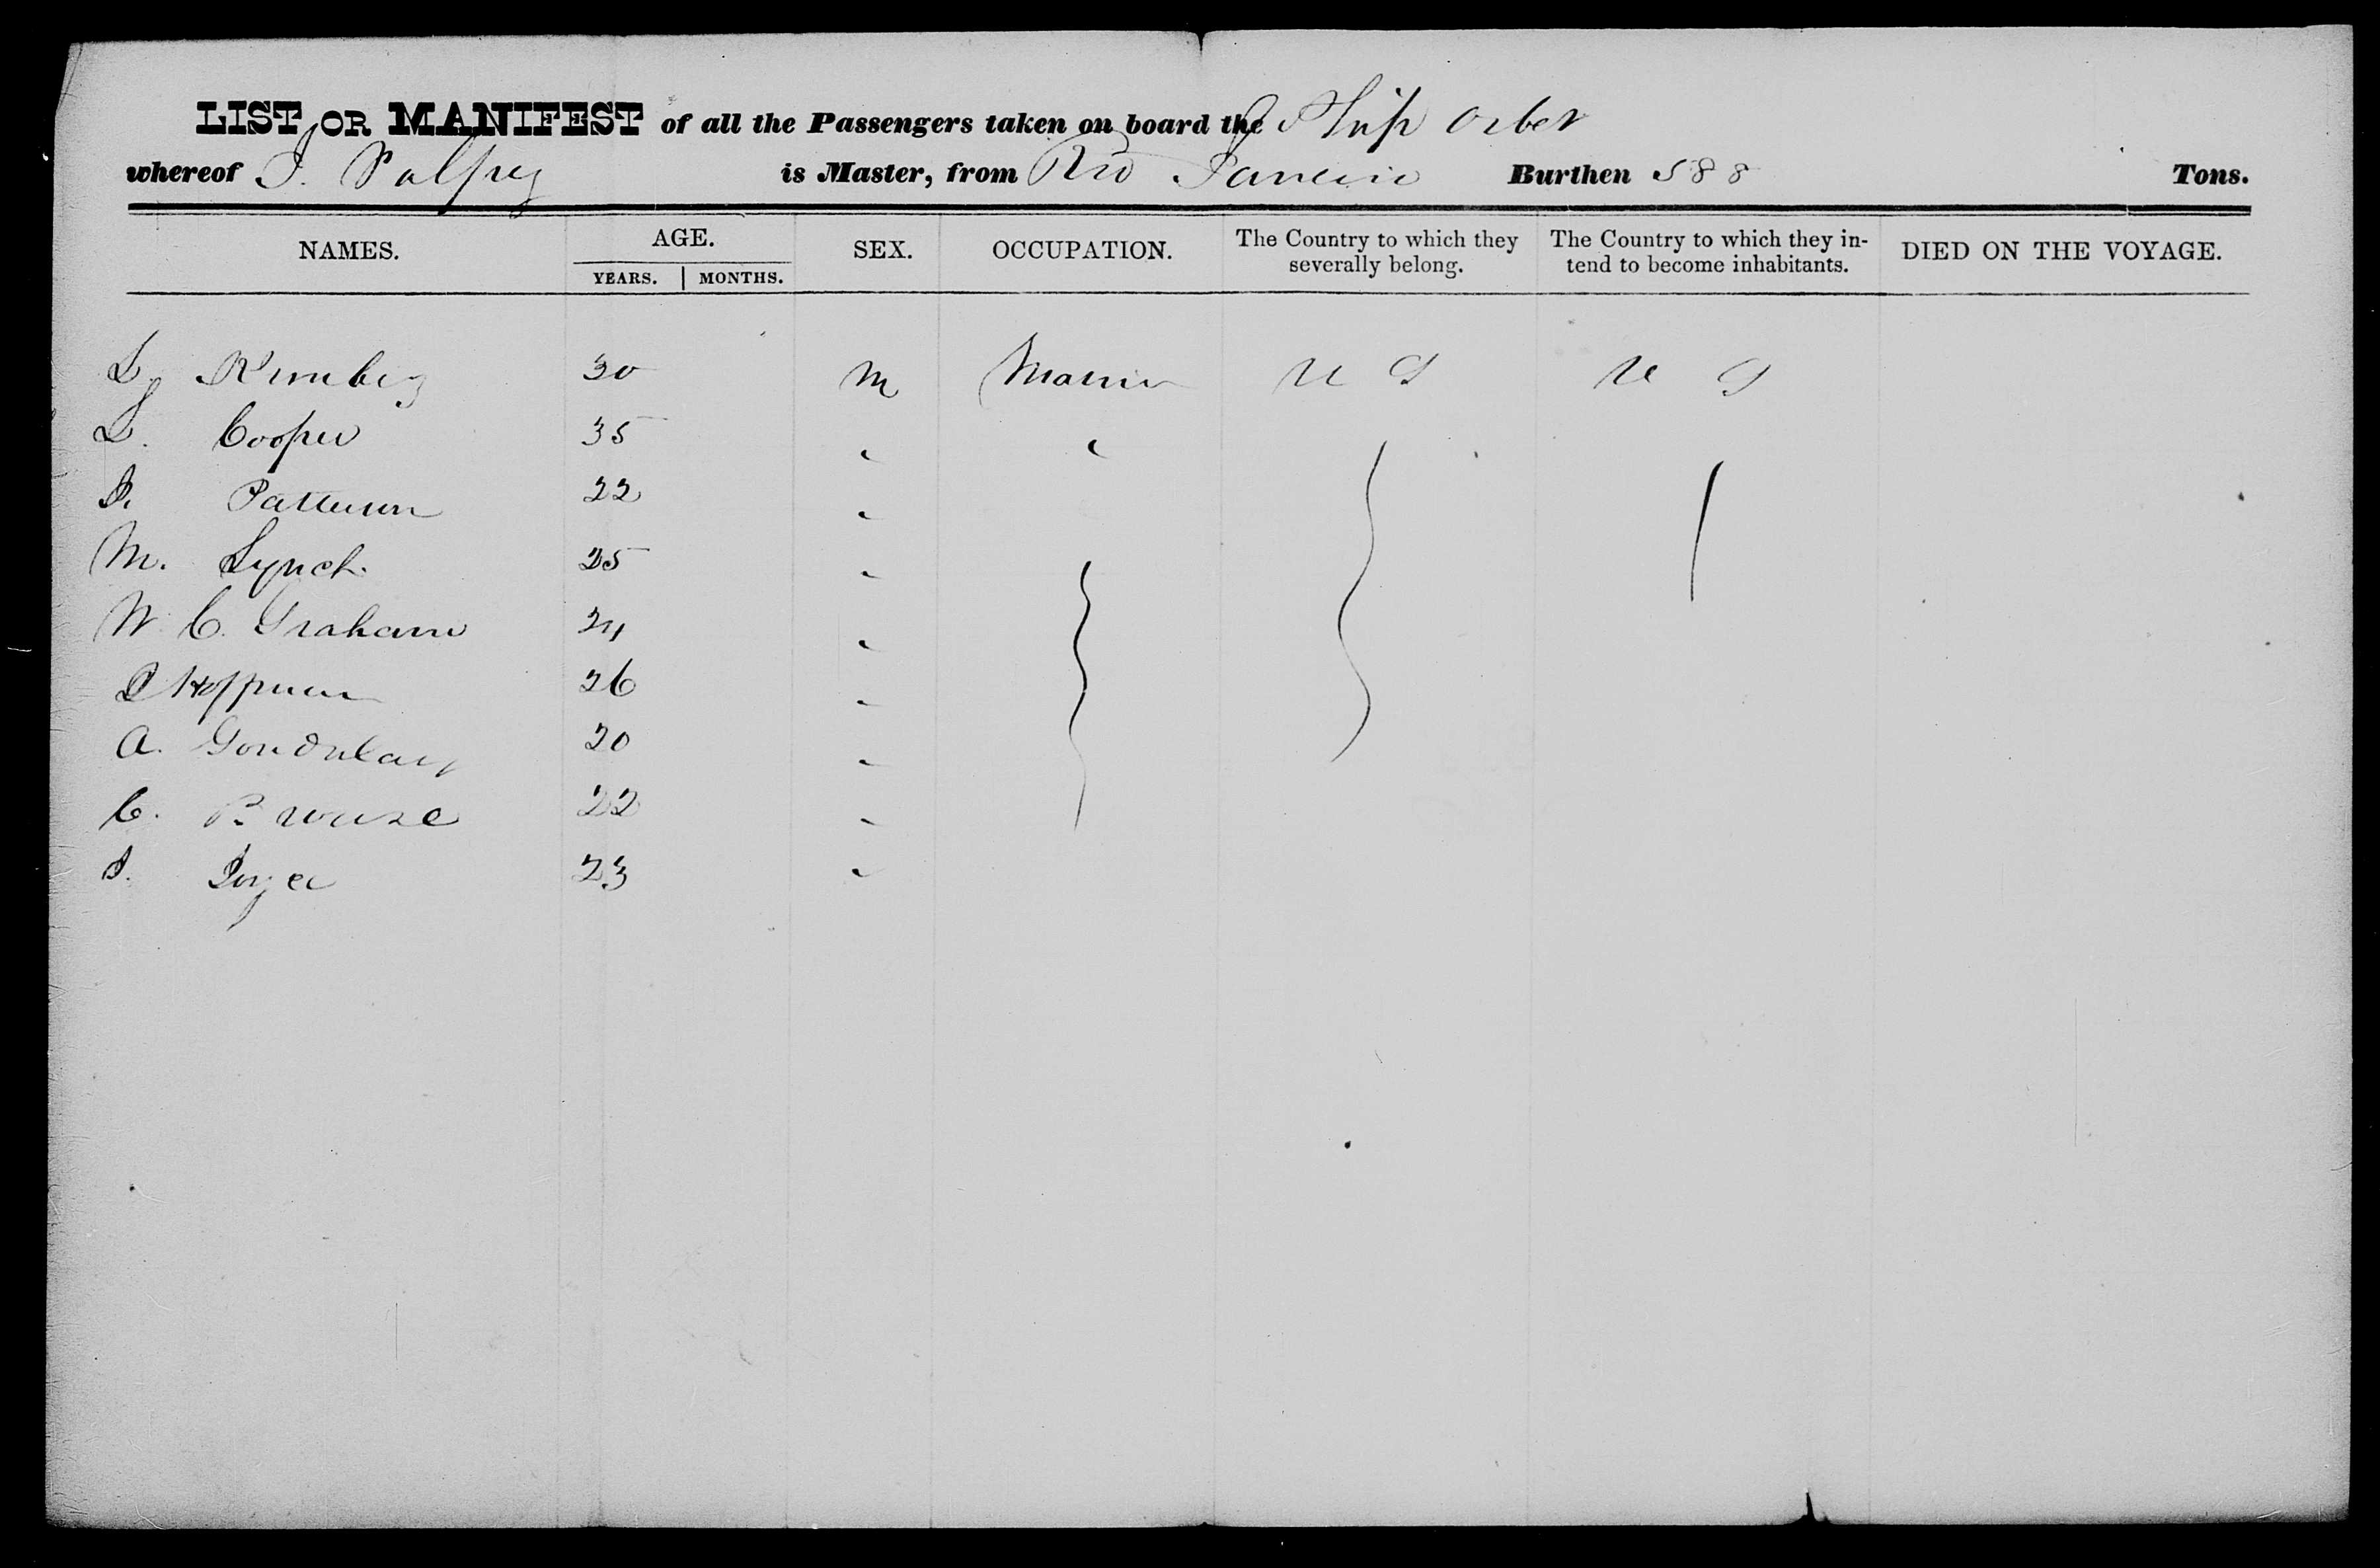 LIST OR MANIFEST of all the Passengers taken on board the Ship Orbet
whereof J. Palfrey is Master, from Rio Janeiro Burthen 588 Tons.
NAMES. AGE. SEX. OCCUPATION. The Country to which they severally belong. The Country to which they intend to become inhabitants. DIED ON THE VOYAGE.
YEARS. MONTHS.
30 M Mariner U S U S
Cooper 35 "
Patterson 22 "
M. Lynch 25 "
W. C. Graham 24 "
Hoffman 26 "
A. 20 "
C. 22 "
23 "